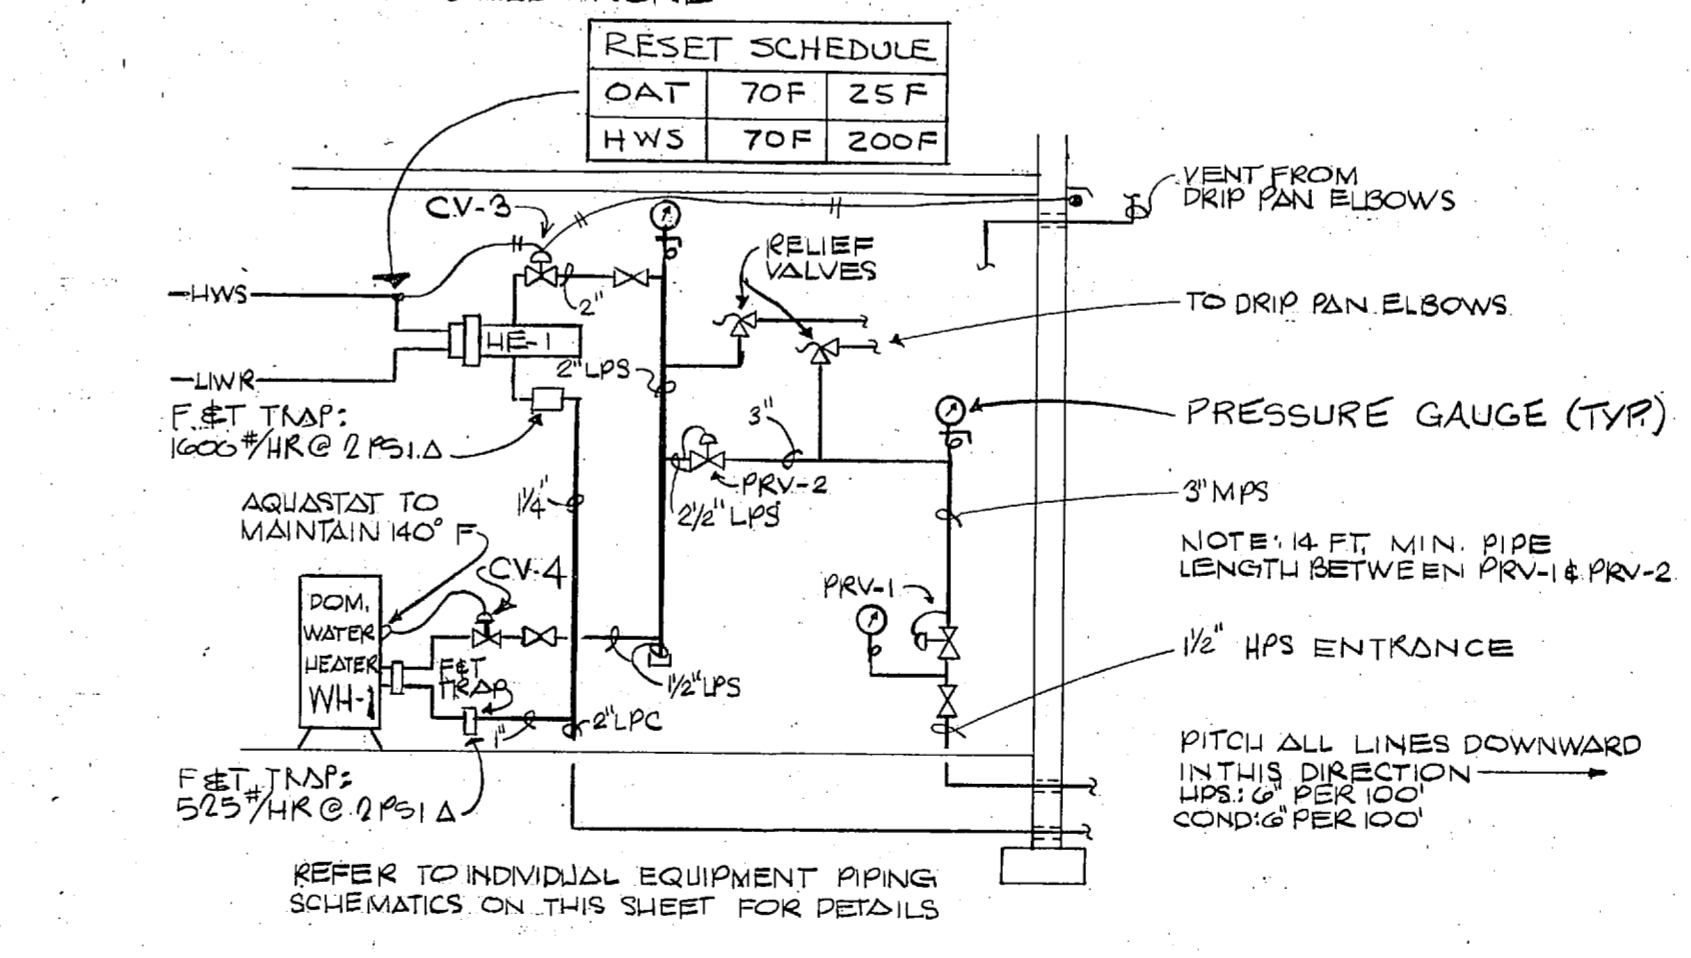 RESET SCHEDULE
OAT 70F 25F
HWS 70F 200F
VENT FROM
DRIP PAN ELBOWS
CV-3
RELIEF
VALVES
HWS
2"
TO DRIP PAN ELBOWS
HE-1
2" LPS
HWR
F&T TRAP:
1600#/HR @ 2 PSI Δ
3"
PRESSURE GAUGE (TYP.)
PRV-2
2 1/2" LPS
3" MPS
1 1/4"
AQUASTAT TO
MAINTAIN 140° F
NOTE: 14 FT. MIN. PIPE
LENGTH BETWEEN PRV-1 & PRV-2
CV-4
PRV-1
DOM.
WATER
HEATER
WH-1
F&T
TRAP
1 1/2" LPS
1 1/2" HPS ENTRANCE
1"
2" LPC
F&T TRAP:
525#/HR @ 2 PSI Δ
PITCH ALL LINES DOWNWARD
IN THIS DIRECTION
HPS: 6" PER 100'
COND: 6" PER 100'
REFER TO INDIVIDUAL EQUIPMENT PIPING
SCHEMATICS ON THIS SHEET FOR DETAILS